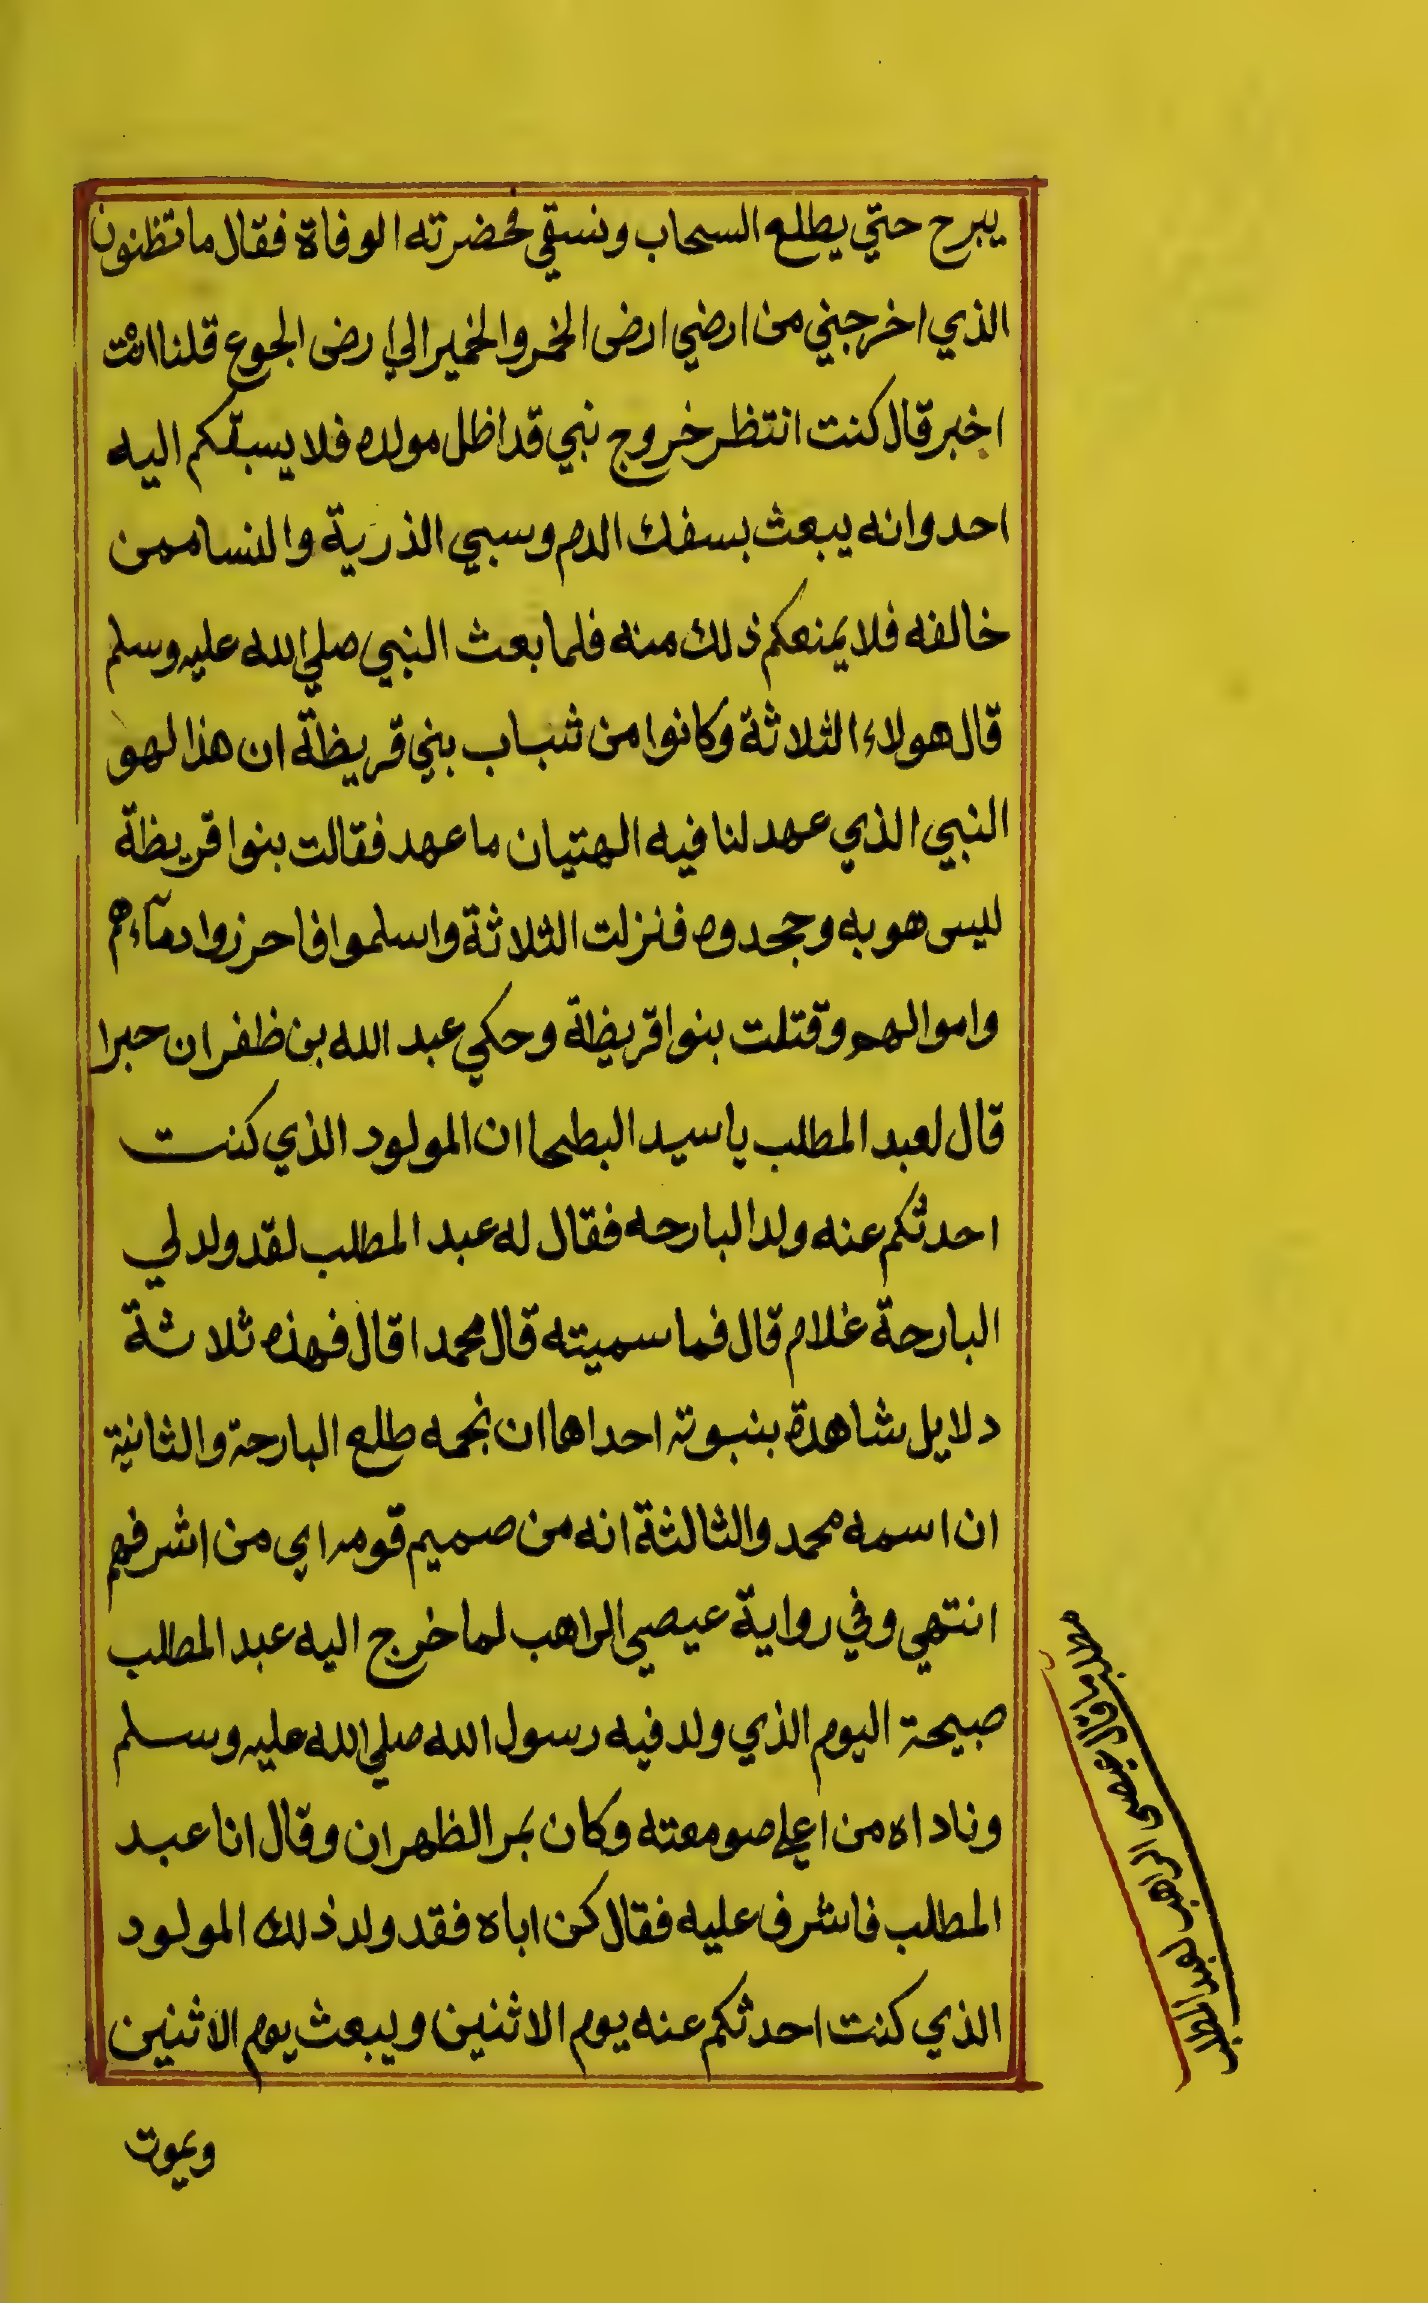 يبرح حتي يطلع السحاب ونسقي فحضرته الوفاة فقال ما تظنون
الذي اخرجني من ارضي ارض الخمر والخمير الي ارض الجوع قلنا انت
اخبر قال كنت انتظر خروج نبي قد اظل مولده فلا يسبقكم اليه
احد وانه يبعث بسفك الدم وسبي الذرية والنسا ممن
خالفه فلا يمنعكم ذلك منه فلما بعث النبي صلي الله عليه وسلم
قال هولاء الثلاثة وكانوا من شباب بني قريظة ان هذا لهو
النبي الذي عهد لنا فيه الهتيان ما عهد فقالت بنوا قريظة
ليس هو به وجحدوه فنزلت الثلاثة واسلموا فاحرزوا دماءهم
واموالهم وقتلت بنوا قريظة وحكي عبد الله بن ظفر ان حبرا
قال لعبد المطلب يا سيد البطحا ان المولود الذي كنت
احدثكم عنه ولد البارحه فقال له عبد المطلب لقد ولد لي
البارحة غلام قال فما سميته قال محمدا قال فهذه ثلاثة
دلايل شاهدة بنبوته احداها ان نجمه طلع البارحة والثانية
ان اسمه محمد والثالثة انه من صميم قومه اي من اشرفهم
انتهي وفي رواية عيصي الراهب لما خرج اليه عبد المطلب
صبيحة اليوم الذي ولد فيه رسول الله صلي الله عليه وسلم
وناداه من اعلي صومعته وكان بمر الظهران وقال انا عبد
المطلب فاشرف عليه فقال كن اباه فقد ولد ذلك المولود
الذي كنت احدثكم عنه يوم الاثنين ويبعث يوم الاثنين
ويموت
قال عيصى الراهب لعبد المطلب